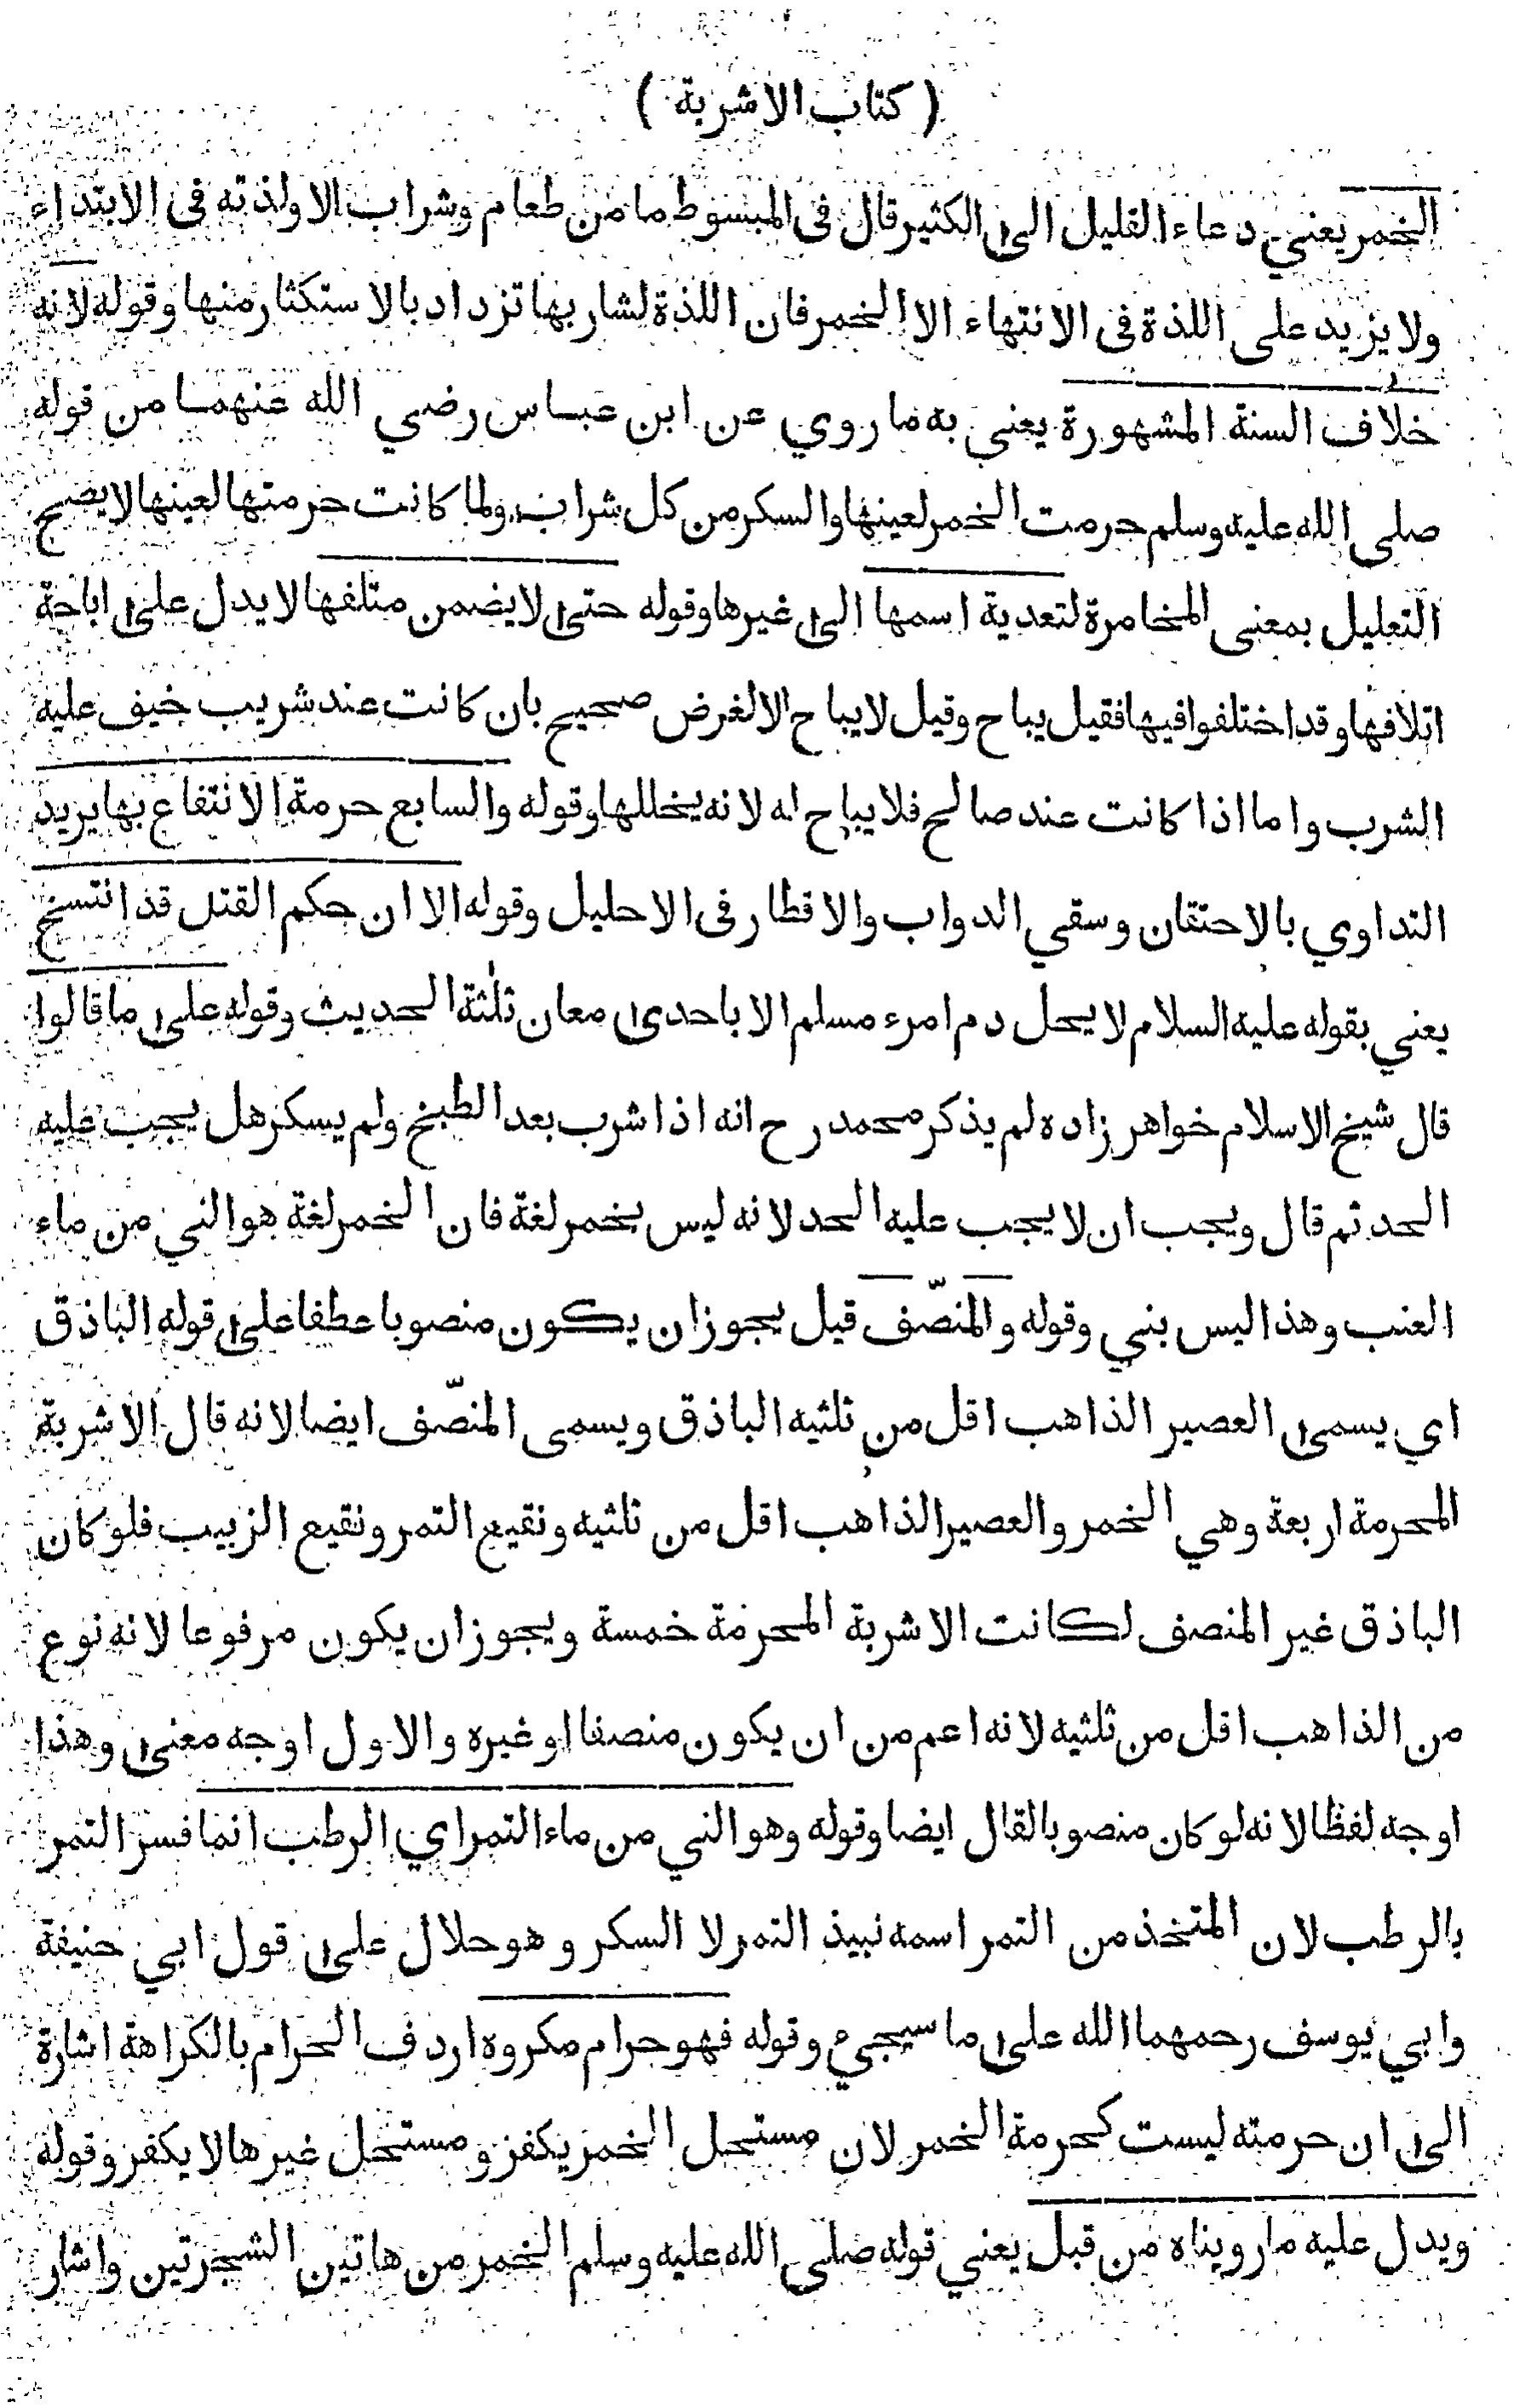 ( كتاب الاشربة )
الخمر يعني دعاء القليل الى الكثير قال فى المبسوط ما من طعام وشراب الا ولذته فى الابتداء
ولا يزيد على اللذة فى الانتهاء الا الخمر فان اللذة لشاربها تزداد بالاستكثار منها وقوله لانه
خلاف السنة المشهورة يعنى به ما روي عن ابن عباس رضي الله عنهما من قوله
صلى الله عليه وسلم حرمت الخمر لعينها والسكر من كل شراب ولما كانت حرمتها لعينها لا يصح
التعليل بمعنى المخامرة لتعدية اسمها الى غيرها وقوله حتى لا يضمن متلفها لا يدل على اباحة
اتلافها وقد اختلفوا فيها فقيل يباح وقيل لا يباح الا لغرض صحيح بان كانت عند شريب خيف عليه
الشرب واما اذا كانت عند صالح فلا يباح له لانه يخللها وقوله والسابع حرمة الانتفاع بها يريد
التداوي بالاحتقان وسقي الدواب والاقطار فى الاحليل وقوله الا ان حكم القتل قد انتسخ
يعني بقوله عليه السلام لا يحل دم امرء مسلم الا باحدى معان ثلثة الحديث وقوله على ما قالوا
قال شيخ الاسلام خواهر زاده لم يذكر محمد رح انه اذا شرب بعد الطبخ ولم يسكر هل يجب عليه
الحد ثم قال ويجب ان لا يجب عليه الحد لانه ليس بخمر لغة فان الخمر لغة هو الني من ماء
العنب وهذا ليس بني وقوله والمنصّف قيل يجوز ان يكون منصوبا عطفا على قوله الباذق
اي يسمى العصير الذاهب اقل من ثلثيه الباذق ويسمى المنصّف ايضا لانه قال الاشربة
المحرمة اربعة وهي الخمر والعصير الذاهب اقل من ثلثيه ونقيع التمر ونقيع الزبيب فلو كان
الباذق غير المنصف لكانت الاشربة المحرمة خمسة ويجوز ان يكون مرفوعا لانه نوع
من الذاهب اقل من ثلثيه لانه اعم من ان يكون منصفا او غيره والاول اوجه معنى وهذا
اوجه لفظا لانه لو كان منصوبا لقال ايضا وقوله وهو الني من ماء التمر اي الرطب انما فسر التمر
بالرطب لان المتخذ من التمر اسمه نبيذ التمر لا السكر وهو حلال على قول ابي حنيفة
وابي يوسف رحمهما الله على ما سيجيء وقوله فهو حرام مكروه اردف الحرام بالكراهة اشارة
الى ان حرمته ليست كحرمة الخمر لان مستحل الخمر يكفر ومستحل غيرها لا يكفر وقوله
ويدل عليه ما رويناه من قبل يعني قوله صلى الله عليه وسلم الخمر من هاتين الشجرتين واشار